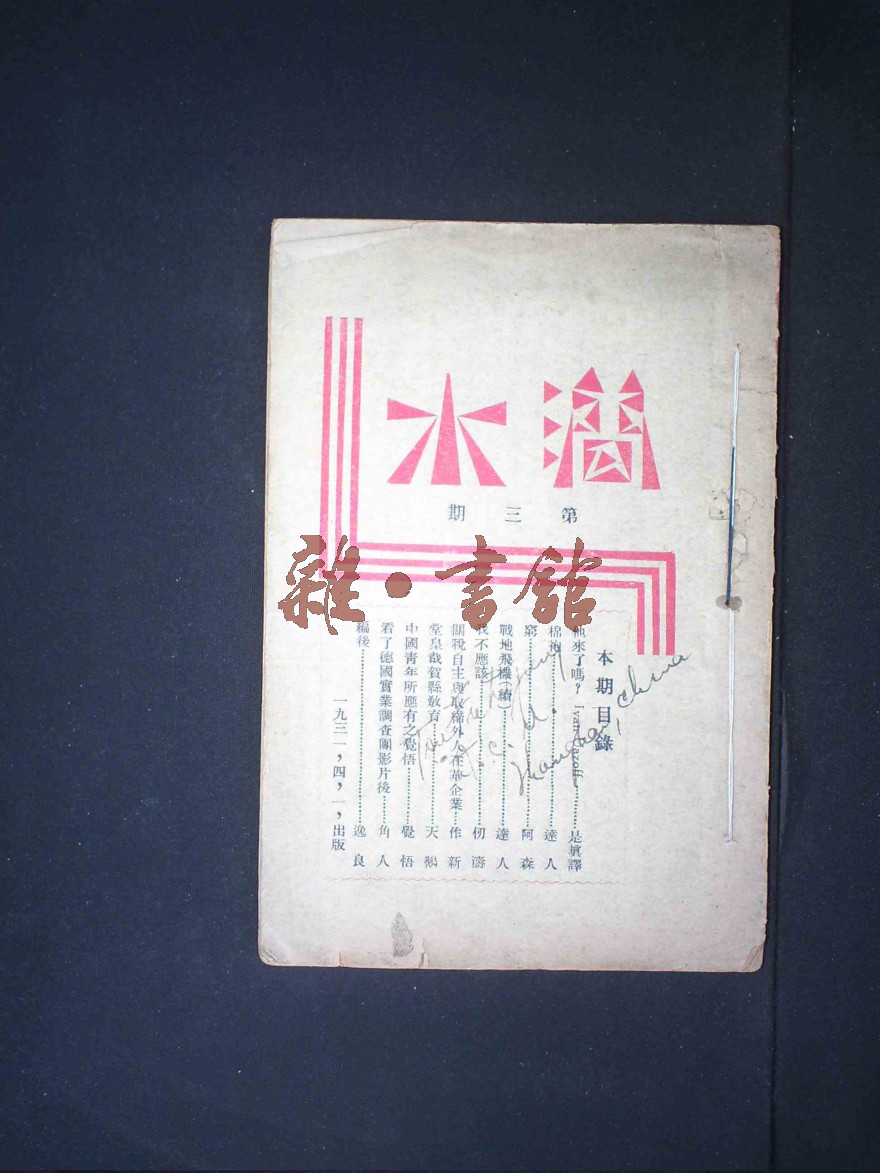 水
第三期
雜・書館
本期目錄
他來了嗎？……是真譯
棉袍……達人
窮……阿森
戰地飛機(續)……達人
我不應該……仞濤
關稅自主與取締外人在華企業…作新
堂皇哉賀縣教育……天鵝
中國青年所應有之覺悟……覺悟
看了德國實業調查團影片後…角人
編後……逸良
一九三一，四，一，出版
Shanghai, China